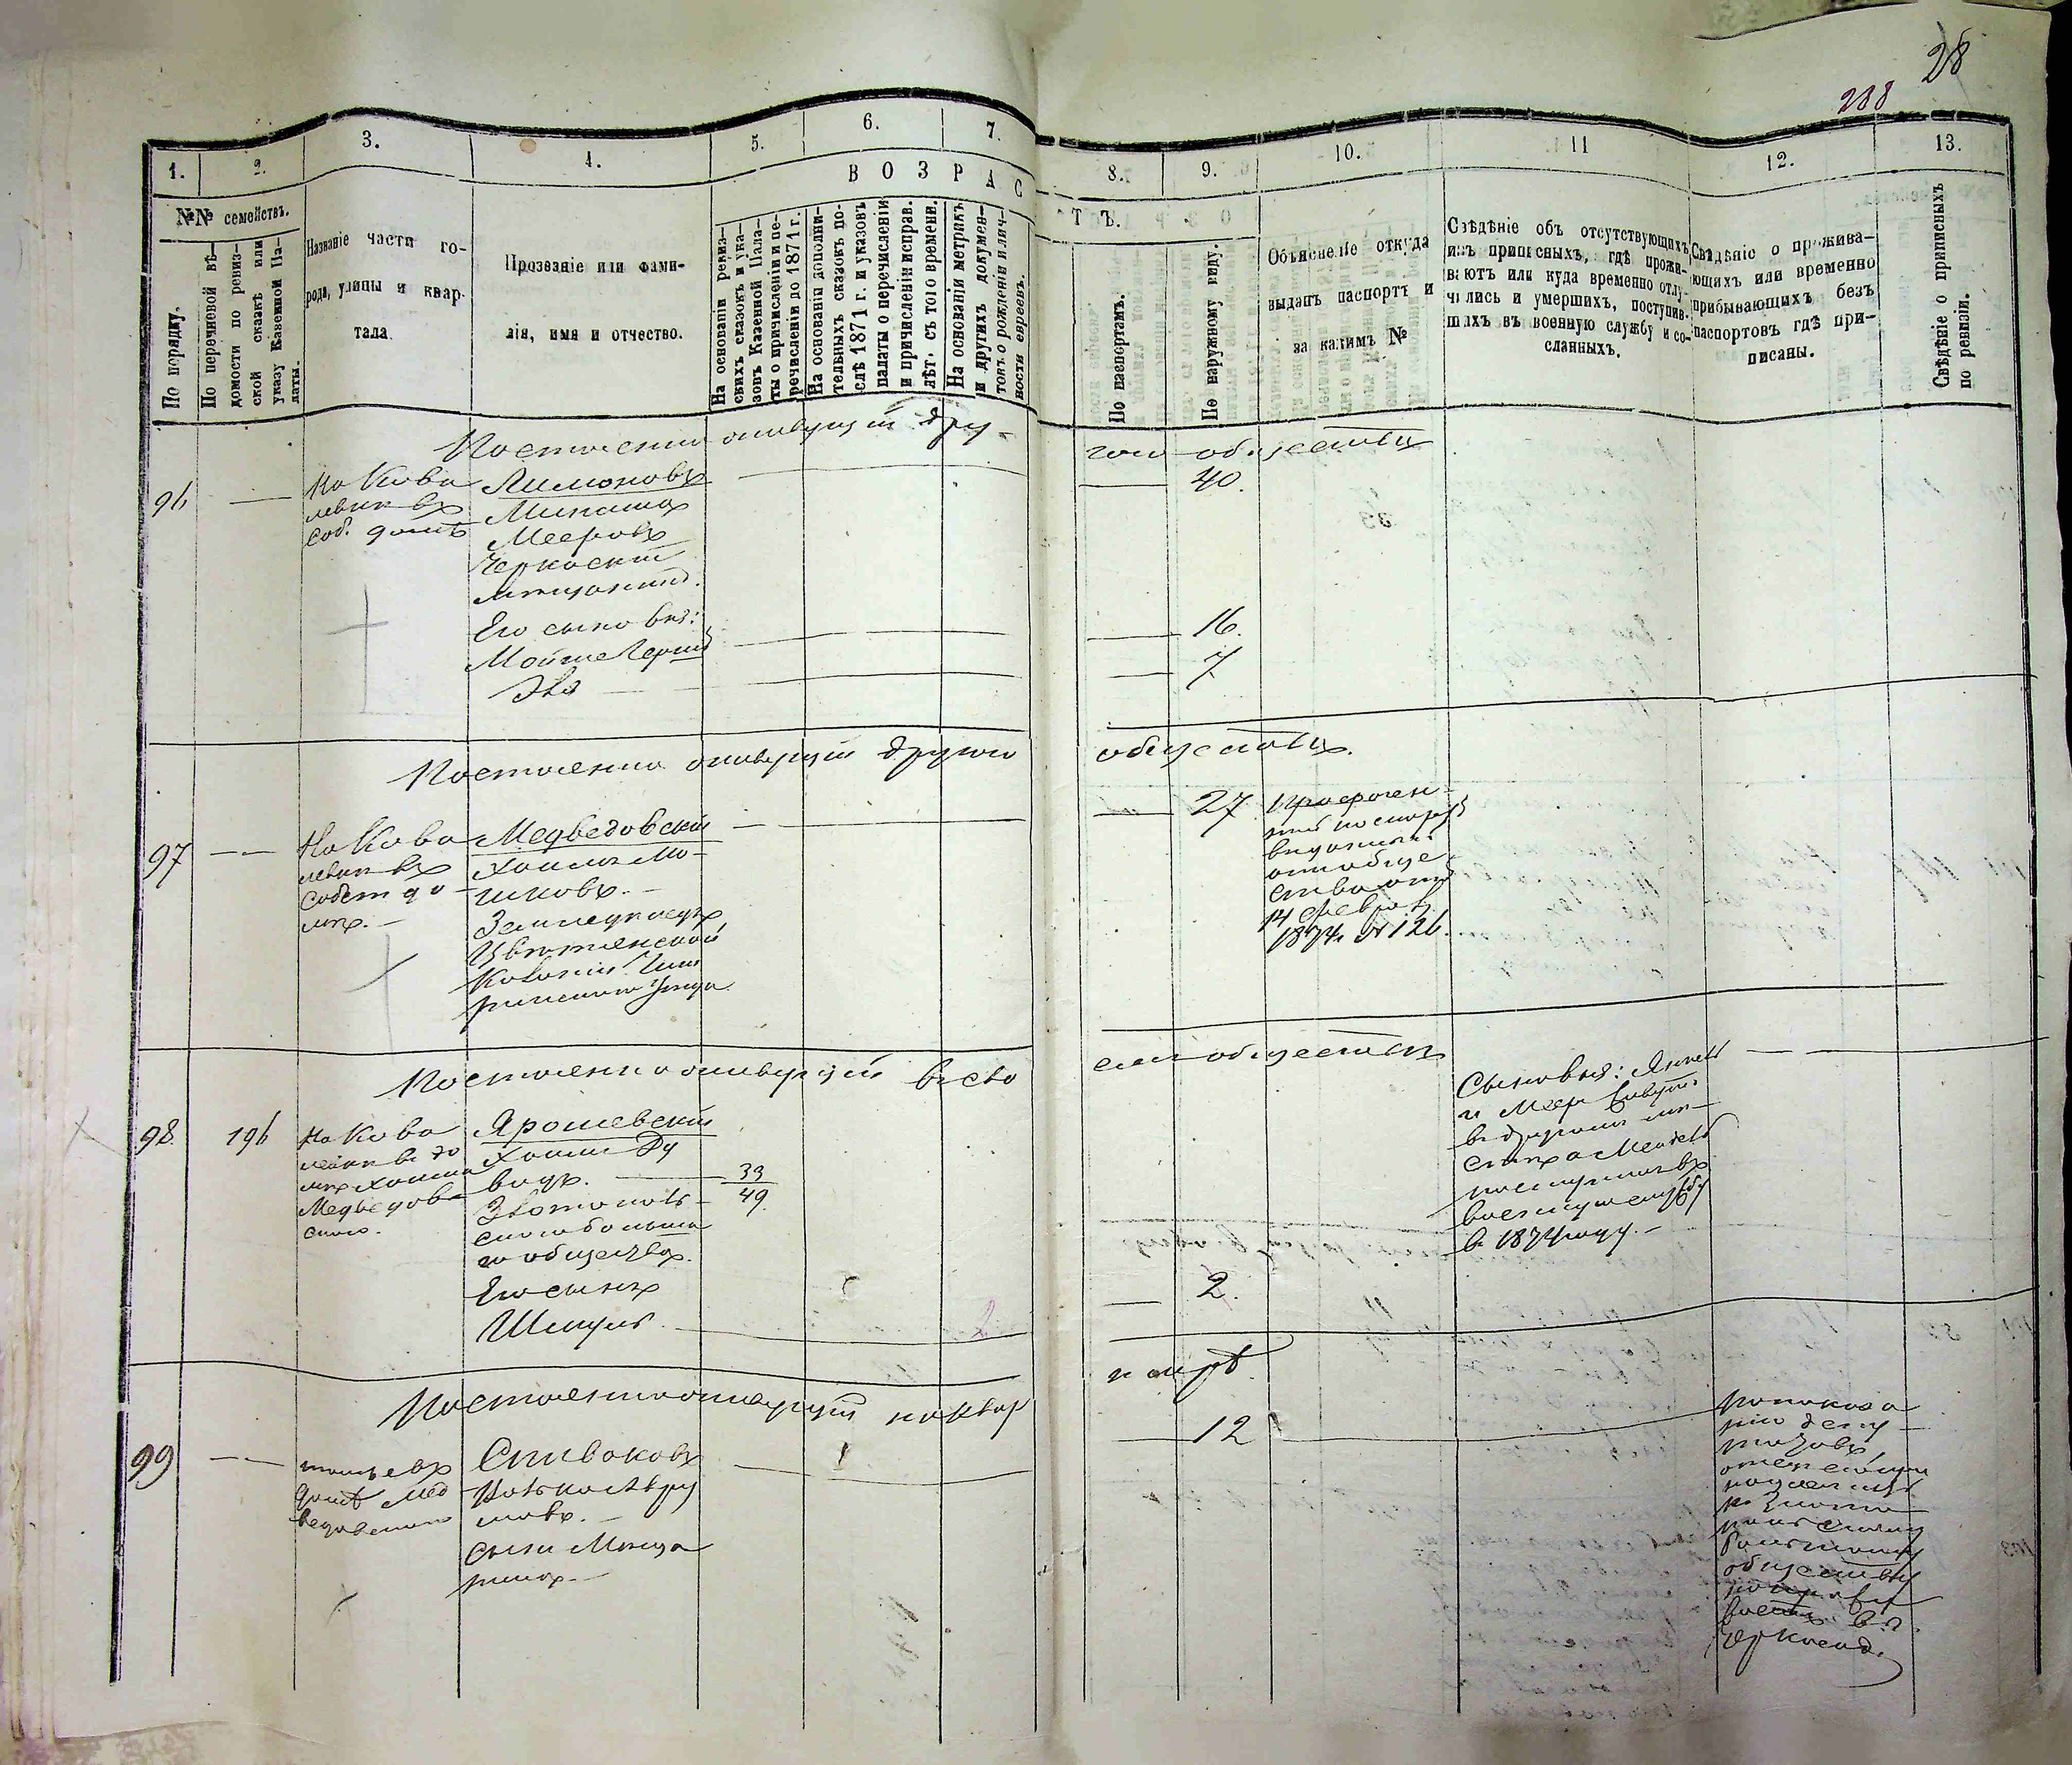 28
288
1.
2.
3.
4.
5.
6.
7.
8.
9.
10.
11
12.
13.
ВОЗРАС
ТЪ.
№№ семействъ.
По порядку.
По перечневой вѣ-
домости по ревиз-
ской сказкѣ или
указу Казенной Па-
латы.
Названіе части го-
рода, улицы и квар-
тала
Прозваніе или фами-
лія, имя и отчество.
На основаніи ревиз-
скихъ сказокъ и ука-
зовъ Казенной Пала-
ты о причисленіи и пе-
речисленіи до 1871 г.
На основаніи дополни-
тельныхъ сказокъ по-
слѣ 1871 г. и указовъ
палаты о перечисленіи
и причисленіи исправ.
лѣт. съ того времени.
На основаніи метрикъ
и другихъ докумен-
товъ о рожденіи и лич-
ности евреевъ.
По паспортамъ.
По наружному виду.
Объясненіе откуда
выданъ паспортъ и
за какимъ №
Свѣдѣніе объ отсутствующихъ
изъ приписныхъ, гдѣ прожи-
ваютъ или куда временно отлу-
чились и умершихъ, поступив-
шихъ въ военную службу и со-
сланныхъ.
Свѣдѣніе о прожива-
ющихъ или временно
прибывающихъ безъ
паспортовъ гдѣ при-
писаны.
Свѣдѣніе о приписныхъ
по ревизіи.
Постоянно живущій дру-
гого общества
96
На Кова
левкѣ въ
соб. домѣ
Лимоновъ
Мееровъ
Черкаскій
мѣщанинъ.
Его сыновья:
Мойше Герш
40.
16.
7
Постоянно живущій другого
общества.
97
На Кова
левкѣ въ
собст до
мѣ.
Медведовскій
Хаимъ Мо-
шковъ.
Земледѣлецъ
колоніи Чиги
ринскаго уѣзда.
27
Просрочен-
ный паспортъ
выданный
отъ обще
ства отъ
14 Февраля
1874 № 126.
Постоянно живущій въ сво
емъ обществѣ
98.
196
На Кова
левкѣ въ до
мѣ Хаима
Медведов
скаго.
Ярошевскій
Хаимъ Ду
видъ.
Златополь-
скаго больша
го общества.
Его сынъ
Шмуль.
33
49.
2
2.
Сыновья: Янкель
и Меер живутъ
въ другомъ мѣ-
стѣ а Мендель
поступилъ въ
военную службу
въ 1874 году.
Постоянно живущій на квар
тирѣ
99
домѣ Мед
ведовскаго
Спиваковъ
сынъ
12
По показа
нію депу
татовъ,
отецъ его при
надлежитъ
къ Злато
польскому
большому
обществу